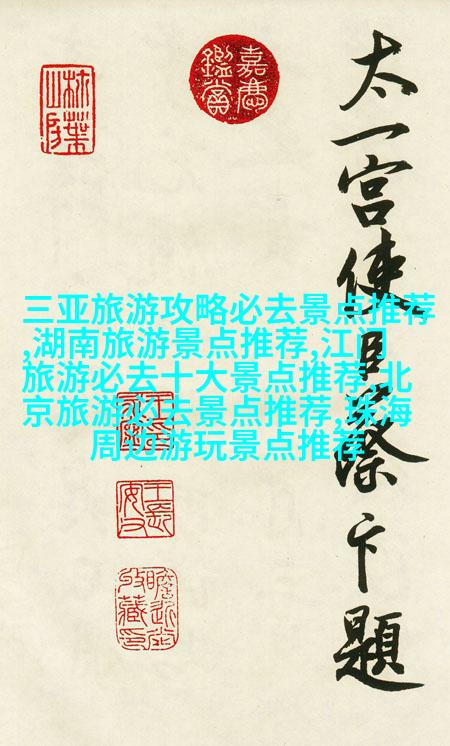 嘉慶鑑賞
太一宫使臣蔡卞題
三亚旅游攻略必去景点推荐
,湖南旅游景点推荐,江门
旅游必去十大景点推荐,北
京旅游必去景点推荐,珠海
周边游玩景点推荐
瞻近堂收藏印